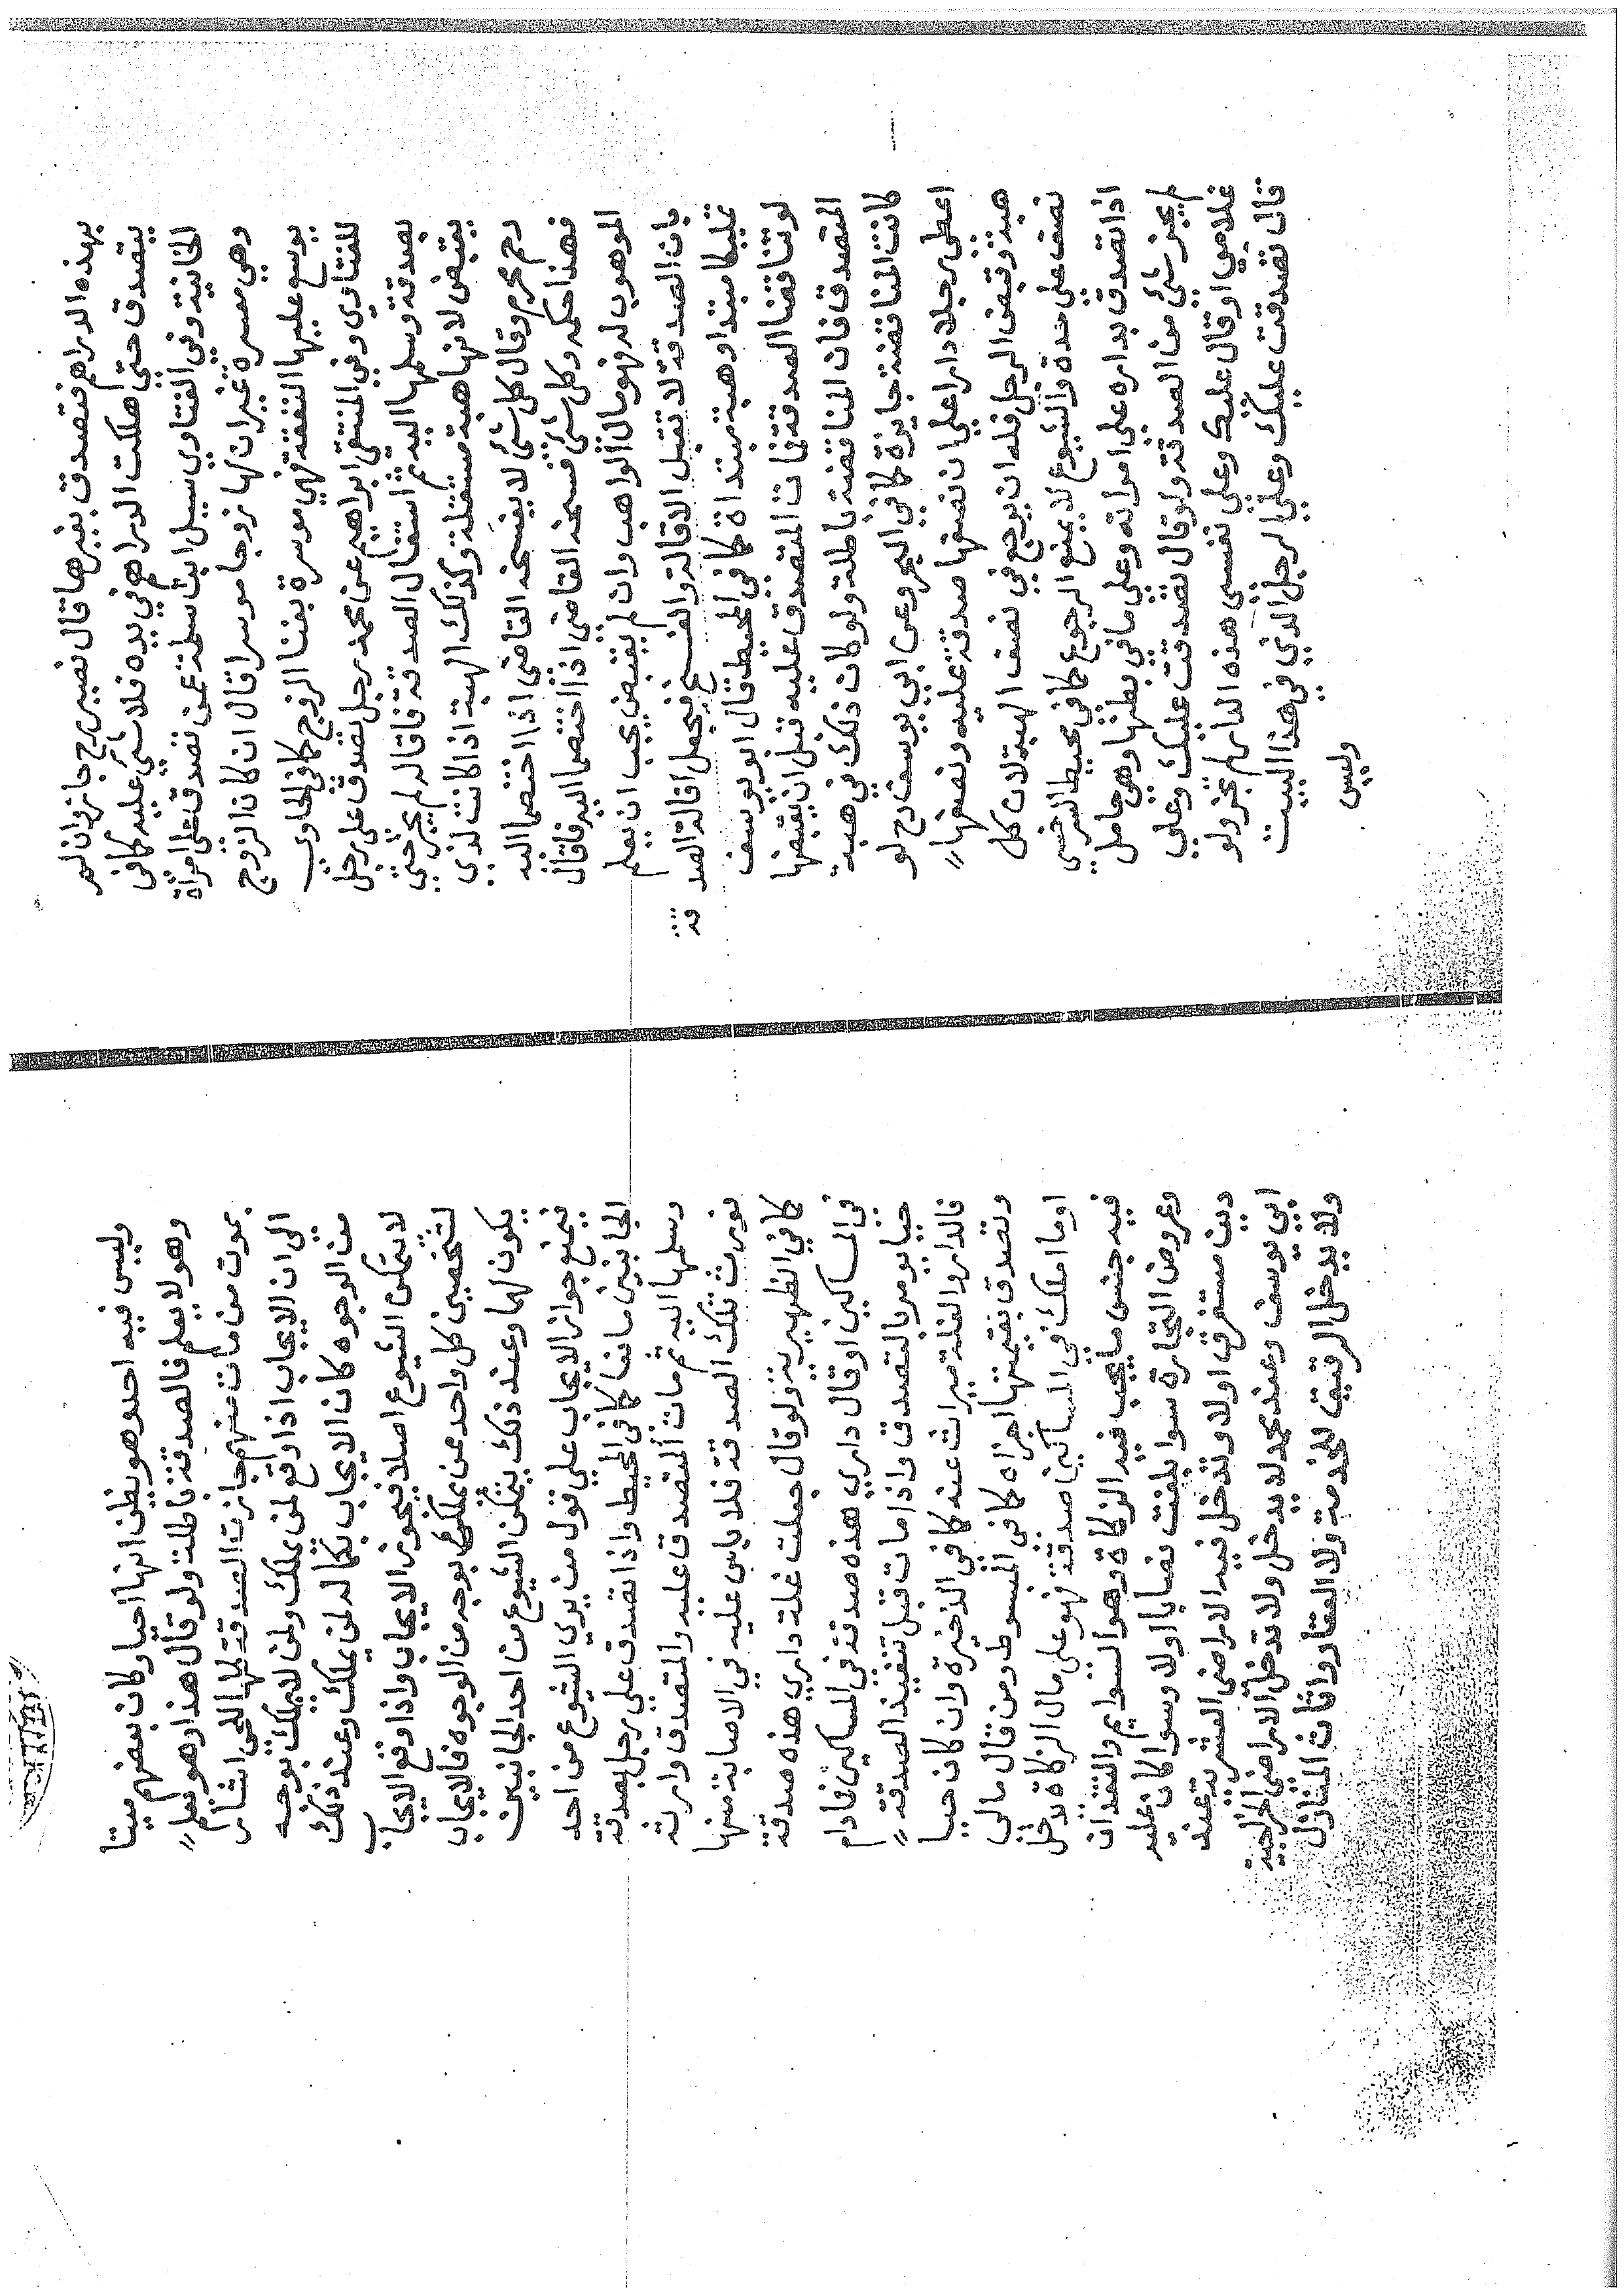 بهذه الدراهم فتصدق بغيرها قال نصير رح جاز وان لم
يتصدق حتي اهلكت الدراهم في يده فلا شئ عليه كما في
الخانية وفي الفتاوي سيل ابن سلمة عمن تصدق على امرأة
وهي معسرة غير ان لها زوجا موسرا قال ان كان الزوج
يوسع عليها النفقة فهي موسرة بغنا الزوج كما في الحاوي
للفتاوي وفي المنتقي ابراهيم عن محمد رجل تصدق على رجل
بصدقة وسلمها اليه ثم استقال الصدقة فاقاله لم يجز حتي
يقبض لانها هبة مستقلة وكذلك الهبة اذا كانت لذي
رحم محرم وقال كل شئ لا يفسخه القاضي اذا اختصما اليه
فهذا حكمه وكل شئ فسخه القاضي اذا اختصما اليه فاقال
الموهوب له فهو مال الواهب وان لم يقبض يجب ان يعلم
بان الصدقة لا تقبل الاقالة والفسخ فيجعل اقالة الصدقة
تمليكا مبتدا وهبة مبتداة كما في المحيط قال ابو يوسف
لو تناقضنا الصدقة فمات المتصدق عليه قبل ان يقبضها
المتصدق فان المناقضة باطلة ولو كان ذلك في هبة
كانت المناقضة جايزة كما في البحر وعن ابي يوسف رح لو
اعطى رجلا دارا علي ان نصفها صدقة عليه ونصفها
هبة وقبض الرجل فله ان يرجع في نصف الهبة لان كل
نصف علي حدة والشيوع لا يمنع الرجوع كما في محيط السرخسي
اذا تصدق بداره على امراته وعلي ما في بطنها وهي حامل
لم يجز شئ من الصدقة ولو قال تصدقت عليك وعلي
غلامي او قال عليك وعلي نفسي هذه الدار لم تجز ولو
قال تصدقت عليك وعلي الرجل الذي في هذا البيت
وليس
وليس فيه احد وهو يظن انها احيا وكان بعضهم ميتا
وهو لا يعلم فالصدقة باطلة ولو قال هذا وهو يعلم
بموت من مات منهم جازت الصدقة لها للحي اشار
الى ان الايجاب اذا وقع لمن يملك ولمن لا يملك بوجه
من الوجوه كان الايجاب بكماله لمن يملك وعند ذلك
لا يتمكن الشيوع اصلا فيجوز الايجاب واذا وقع الايجاب
لشخصين كل واحد ممن يملك بوجه من الوجوه فالايجاب
يكون لهما وعند ذلك يتمكن الشيوع من احد الجانبين
فيمنع جواز الايجاب علي قول من يري الشيوع من احد
الجانبين مانعا كما في المحيط واذا تصدق علي رجل بصدقة
وسلمها اليه ثم مات المتصدق عليه والمتصدق وارثه
فورث تلك الصدقة فلا باس عليه في الاصابة منها
كما في الظهيرية ولو قال جعلت غلة داري هذه صدقة
في المساكين او قال داري هذه صدقة في المساكين فما دام
حيا يومر بالتصدق واذا مات قبل تنفيذ الصدقة
فالدار والغلة ميراث عنه كما في الذخيرة وان كان حيا
وتصدق بقيمتها اجزاه كما في المبسوط ومن قال مالي
او ما املك في المساكين صدقة فهو على مال الزكاة تدخل
فيه جنس ما يجب فيه الزكاة وهو السوايم والنقدان
وعروض التجارة سوا بلغت نصابا اولا وسوا كان عليه
دين مستغرق اولا وتدخل فيه الاراضي العشرية عند
ابي يوسف وعند محمد لا يدخل ولا تدخل الاراضي الخراجية
ولا يدخل الرقيق للخدمة ولا العقار واثاث المنازل